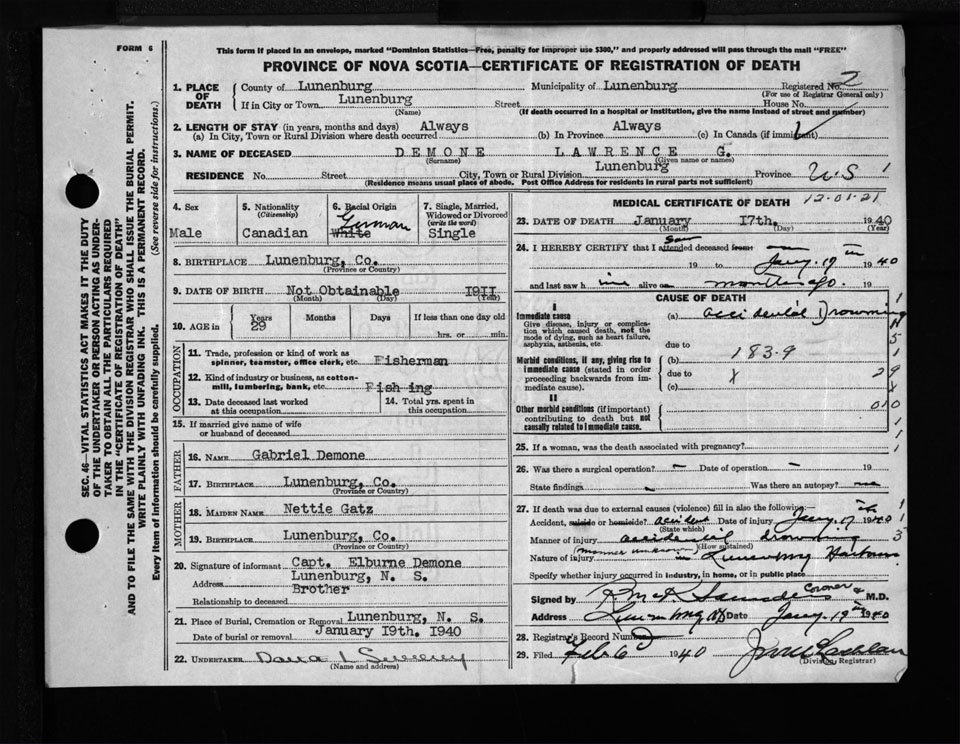 FORM 6
This form if placed in an envelope, marked "Dominion Statistics—Free, penalty for improper use $300," and properly addressed will pass through the mail "FREE"
PROVINCE OF NOVA SCOTIA—CERTIFICATE OF REGISTRATION OF DEATH
SEC. 46—VITAL STATISTICS ACT MAKES IT THE DUTY
OF THE UNDERTAKER OR PERSON ACTING AS UNDER-
TAKER TO OBTAIN ALL THE PARTICULARS REQUIRED
IN THE "CERTIFICATE OF REGISTRATION OF DEATH"
AND TO FILE THE SAME WITH THE DIVISION REGISTRAR WHO SHALL ISSUE THE BURIAL PERMIT.
WRITE PLAINLY WITH UNFADING INK. THIS IS A PERMANENT RECORD.
Every item of information should be carefully supplied. (See reverse side for instructions.)
1. PLACE OF DEATH County of Lunenburg Municipality of Lunenburg Registered No. 2
(For use of Registrar General only)
If in City or Town Lunenburg Street House No.
(Name) (If death occurred in a hospital or institution, give the name instead of street and number)
2. LENGTH OF STAY (in years, months and days) Always Always
(a) In City, Town or Rural Division where death occurred (b) In Province (c) In Canada (if immigrant)
3. NAME OF DECEASED DEMONE LAWRENCE G.
(Surname) (Given name or names)
RESIDENCE No. Street City, Town or Rural Division Lunenburg Province N.S 1
(Residence means usual place of abode. Post Office Address for residents in rural parts not sufficient)
4. Sex
Male
5. Nationality
(Citizenship)
Canadian
6. Racial Origin
German
White
7. Single, Married,
Widowed or Divorced
(write the word)
Single
8. BIRTHPLACE Lunenburg, Co.
(Province or Country)
9. DATE OF BIRTH Not Obtainable 1911
(Month) (Day) (Year)
10. AGE in Years Months Days If less than one day old
29 hrs. or min.
OCCUPATION
11. Trade, profession or kind of work as
spinner, teamster, office clerk, etc. Fisherman
12. Kind of industry or business, as cotton-
mill, lumbering, bank, etc. Fishing
13. Date deceased last worked
at this occupation
14. Total yrs. spent in
this occupation
15. If married give name of wife
or husband of deceased
FATHER
16. NAME Gabriel Demone
17. BIRTHPLACE Lunenburg, Co.
(Province or Country)
MOTHER
18. MAIDEN NAME Nettie Gatz
19. BIRTHPLACE Lunenburg, Co.
(Province or Country)
20. Signature of informant Capt. Elburne Demone
Address Lunenburg, N. S.
Relationship to deceased Brother
21. Place of Burial, Cremation or Removal Lunenburg, N. S.
Date of burial or removal January 19th. 1940
22. UNDERTAKER
(Name and address)
MEDICAL CERTIFICATE OF DEATH 12-01-21
23. DATE OF DEATH January 17th. 1940
(Month) (Day) (Year)
24. I HEREBY CERTIFY that I attended deceased from saw
19 to Jany. 19th 1940
and last saw him alive on months ago. 19
CAUSE OF DEATH
I
Immediate cause
Give disease, injury or complica-
tion which caused death, not the
mode of dying, such as heart failure,
asphyxia, asthenia, etc.
(a) accidental Drowning
due to
Morbid conditions, if any, giving rise to
immediate cause (stated in order
proceeding backwards from im-
mediate cause).
(b) 183.9
due to X 29
(c)
II
Other morbid conditions (if important)
contributing to death but not
causally related to immediate cause. 010
25. If a woman, was the death associated with pregnancy?
26. Was there a surgical operation? — Date of operation — 19
State findings Was there an autopsy? no
27. If death was due to external causes (violence) fill in also the following:
Accident, suicide or homicide? accident Date of injury Jany. 17th 1940
(State which)
Manner of injury accidental drowning
(How sustained)
(manner unknown)
Nature of injury in Lunenburg Harbour
Specify whether injury occurred in industry, in home, or in public place
Signed by Saunders Coroner & M.D.
Address Lunenburg NS Date Jany. 19th 1940
28. Registrar's Record Number
29. Filed Feb 6 1940
(Division Registrar)